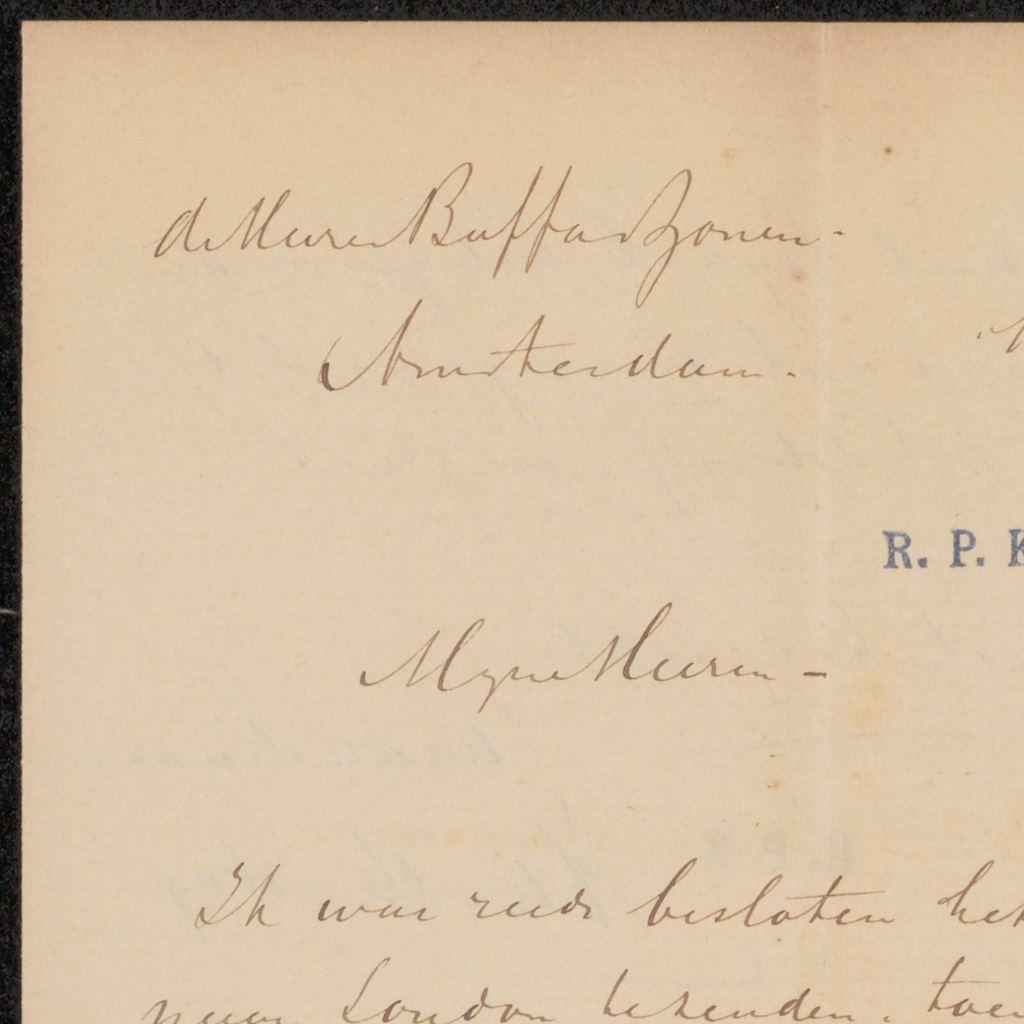 de Heeren Buffa & Zonen.
Amsterdam.
R. P. K
Myne Heeren -
Ik was reeds besloten het
naar London te zenden, toen